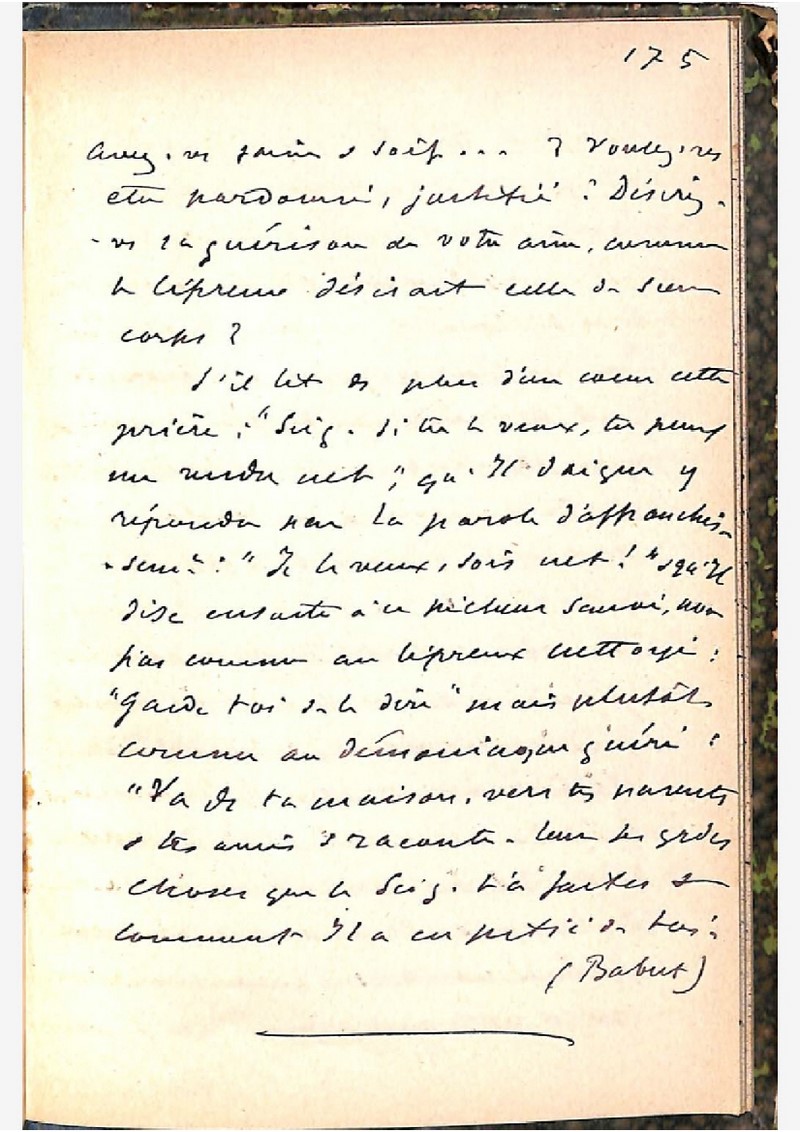 175
Avez-vs faim & soif... ? Voulez-vs
être pardonné, justifié ? Désirez-
-vs la guérison de votre âme, comme
le lépreux désirait celle de son
corps ?
S'il lit ds plus d'un coeur cette
prière : "Seig. si tu le veux, tu peux
me rendre net", qu'Il daigne y
répondre par la parole d'affranchis-
-semt : "Je le veux, sois net !" & qu'Il
dise ensuite à ce pécheur sauvé, non
pas comme au lépreux nettoyé :
"Garde toi de le dire" mais plutôt
comme au démoniaque guéri :
"Va ds ta maison, vers tes parents
& tes amis & raconte-leur les grdes
choses que le Seig. t'a faites &
comment Il a eu pitié de toi".
(Babut)